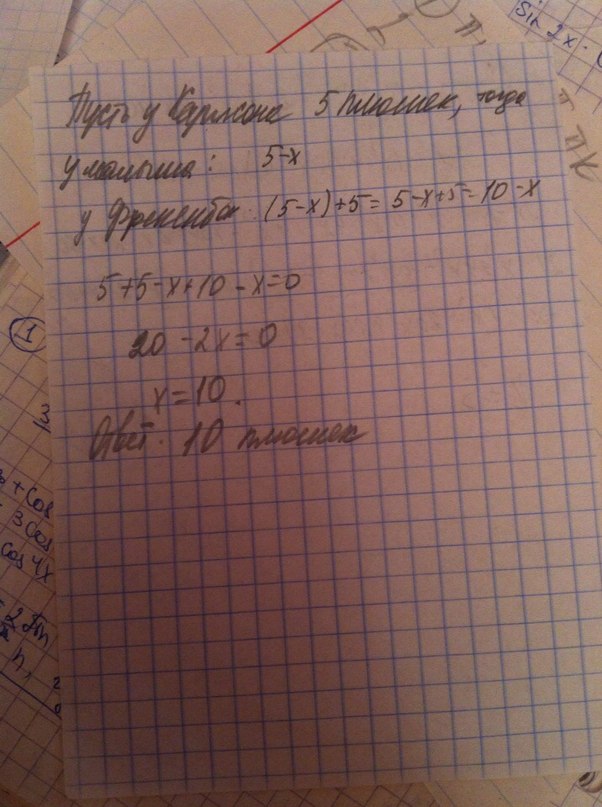 Пусть у Карлсона 5 плюшек, тогда
у малыша: 5-x
у Фрекенбок (5-x)+5= 5-x+5=10-x
5+5-x+10-x=0
20-2x=0
x=10.
Ответ. 10 плюшек
sin 2x.
1
+cos
3cos
cos 4x
πk